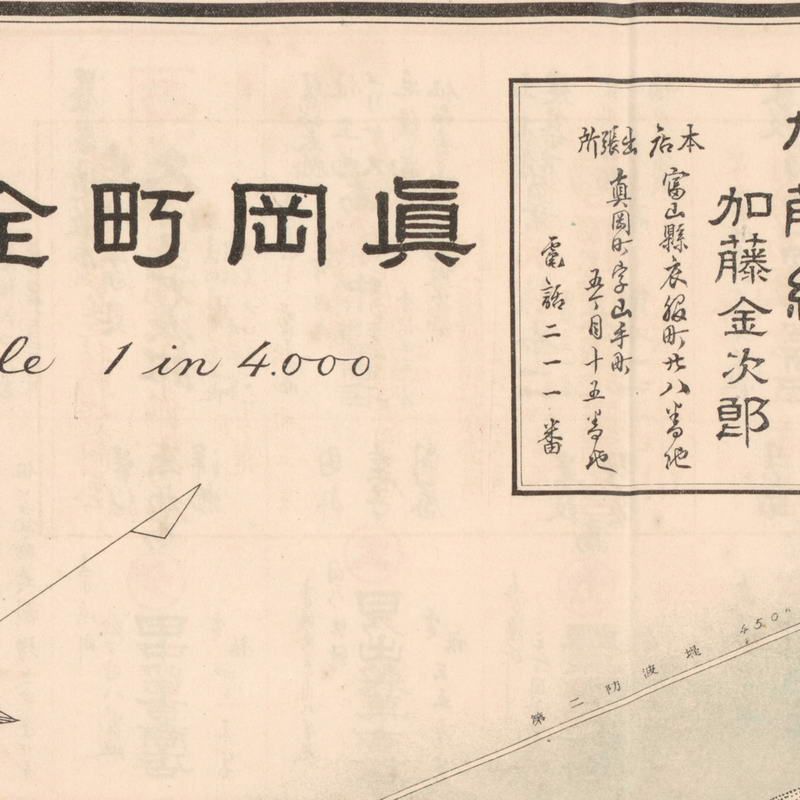 眞岡町全
1 in 4.000
加藤金次郎
本店
富山縣衣服町廿八番地
出張所
真岡町字山手町
五丁目十五番地
電話二一一番
第二防波堤 450"